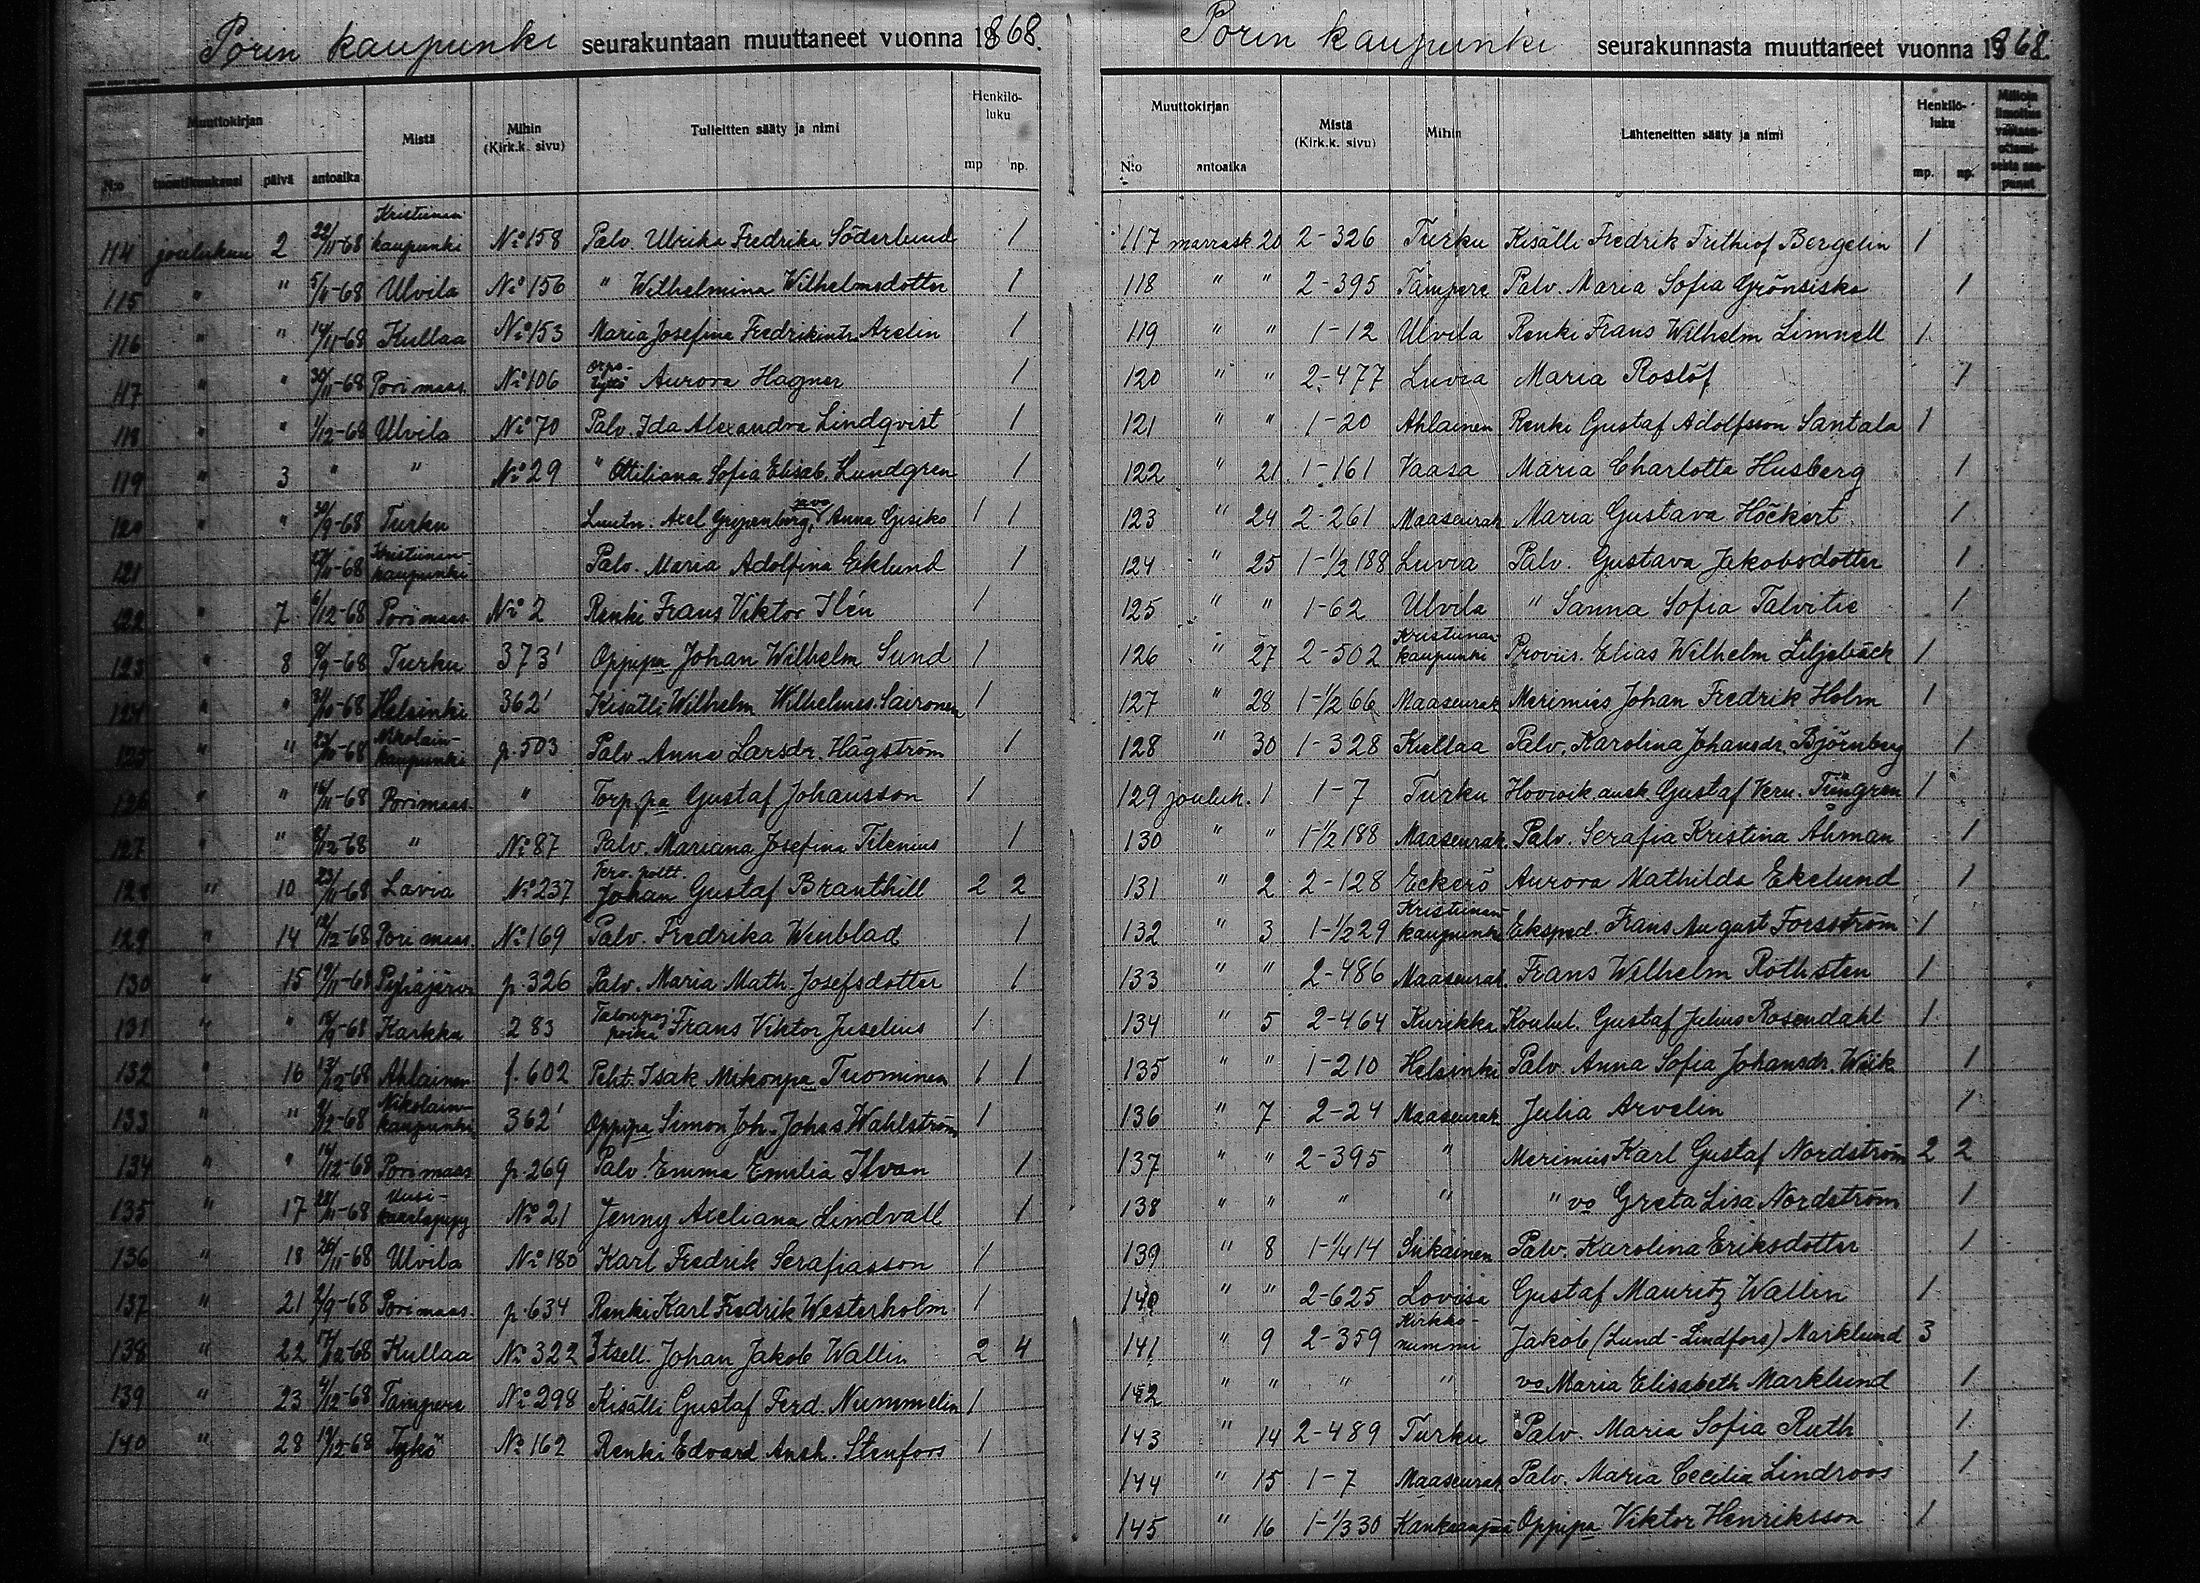 Porin kaupunki seurakuntaan muuttaneet vuonna 1868.
Muuttokirjan Mistä Mihin (Kirk.k. sivu) Tulleitten sääty ja nimi Henkilöluku
N:o tuontikuukausi päivä antoaika mp np.
114 joulukuu 2 22/11-68 Kristiinankaupunki No 158 Palv. Ulrika Fredrika Söderlund 1
115 " " 5/11-68 Ulvila No 156 " Wilhelmina Wilhelmsdotter 1
116 " " 14/11-68 Kullaa No 153 Maria Josefina Fredrikintr. Axelin 1
117 " " 30/11-68 Pori maas. No 106 Orpotyttö Aurora Hagner 1
118 " " 1/12-68 Ulvila No 70 Palv. Ida Alexandra Lindqvist 1
119 " 3 " " No 29 " Ottiliana Sofia Elisab. Lundgren 1
120 " " 30/9-68 Turku Luutn. Axel Gripenberg, ja vo Anna Gisiko 1 1
121 /11-68 Kristiinankaupunki Palv. Maria Adolfina Eklund 1
122 " 7 6/12-68 Pori maas No 2 Renki Frans Viktor Ilén 1
123 " 8 8/9-68 Turku 373' Oppipa Johan Wilhelm Sund 1
124 " " 31/10-68 Helsinki 362' Kisälli Wilhelm Wilhelmss. Saironen 1
125 " " 23/10-68 Nikolainkaupunki p. 503 Palv. Anna Larsdr. Hägström 1
126 " " 16/11-68 Pori maas. " Torp.pa Gustaf Johansson 1
127 " " 8/12-68 " No 87 Palv. Mariana Josefina Tilenius 1
128 " 10 23/11-68 Lavia No 237 Johan Gustaf Branthill 2 2
129 " 14 12/12-68 Pori maas. No 169 Palv. Fredrika Winblad 1
130 " 15 19/11-68 Pyhäjärvi p. 326 Palv. Maria Math. Josefsdotter 1
131 " " /9-68 Karkku 283 Talonpoj. poika Frans Viktor Juselius 1
132 " 16 13/12-68 Ahlainen f. 602 Peht. Isak Mikonpa Tuominen 1 1
133 " " 8/12-68 Nikolainkaupunki 362' Oppipa Simon Joh. Johss Wahlström 1
134 " " 14/12-68 Pori maas p. 269 Palv Emma Emilia Ilvan 1
135 " 17 28/11-68 Uusikaarlepyy No 21 Jenny Axeliana Lindvall 1
136 " 18 26/11-68 Ulvila No 180 Karl Fredrik Serafiasson 1
137 " 21 2/9-68 Pori maas. p. 634 Renki Karl Fredrik Westerholm 1
138 " 22 17/12-68 Kullaa No 322 Itsell. Johan Jakob Wallin 2 4
139 " 23 4/12-68 Tampere No 298 Kisälli Gustaf Ferd. Nummelin 1
140 " 28 19/12-68 Tykö No 162 Renki Edvard Ansh. Stenfors 1
Porin kaupunki seurakunnasta muuttaneet vuonna 1868.
Muuttokirjan Mistä (Kirk.k. sivu) Mihin Lähteneitten sääty ja nimi Henkilöluku Milloin ilmoitus vastaanottamisesta saapunut
N:o antoaika mp. np.
117 marrask. 20 2-326 Turku Kisälli Fredrik Frithiof Bergelin 1
118 " " 2-395 Tampere Palv. Maria Sofia Grönsisko 1
119 " " 1-12 Ulvila Renki Frans Wilhelm Limnell 1
120 " " 2-477 Luvia Maria Roslöf 1
121 " " 1-20 Ahlainen Renki Gustaf Adolfsson Santala 1
122 " 21 1-161 Vaasa Maria Charlotta Husberg 1
123 " 24 2-261 Maaseurak Maria Gustava Höckert 1
124 " 25 1-1/2 188 Luvia Palv. Gustava Jakobsdotter 1
125 " " 1-62 Ulvila " Sanna Sofia Talvitie 1
126 " 27 2-502 Kristiinankaupunki Proviis. Elias Wilhelm Liljebäck 1
127 " 28 1-1/2 66 Maaseurak Merimies Johan Fredrik Holm 1
128 " 30 1-328 Kullaa Palv. Karolina Johansdr. Björnberg 1
129 jouluk. 1 1-7 Turku Hovioik. ausk. Gustaf Vern. Tüngren 1
130 " " 1-1/2 188 Maaseurak. Palv. Serafia Kristina Ahman 1
131 " 2 2-128 Eckerö Aurora Mathilda Ekelund 1
132 " 3 1-1/2 29 Kristiinankaupunki Eksped. Frans August Forsström 1
133 " " 2-486 Maaseurak. Frans Wilhelm Rothsten 1
134 " 5 2-464 Kurikka Koulul. Gustaf Julius Rosendahl 1
135 " " 1-210 Helsinki Palv. Anna Sofia Johansdr. Wiik 1
136 " 7 2-24 Maaseurak Julia Arvelin 1
137 " " 2-395 " Merimies Karl Gustaf Nordström 2 2
138 " " " " " vo Greta Lisa Nordström 1
139 " 8 1-1/4 14 Siikainen Palv. Karolina Eriksdotter 1
140 " " 2-625 Lovisa Gustaf Mauritz Wallin 1
141 " 9 2-359 Kirkkonummi Jakob (Lund-Lindfors) Marklund 3
142 " " " " vo Maria Elisabeth Marklund 1
143 " 14 2-489 Turku Palv. Maria Sofia Ruth 1
144 " 15 1-7 Maaseurak Palv. Maria Cecilia Lindroos 1
145 " 16 1-1/3 30 Kankaanpää Oppipa Viktor Henriksson 1